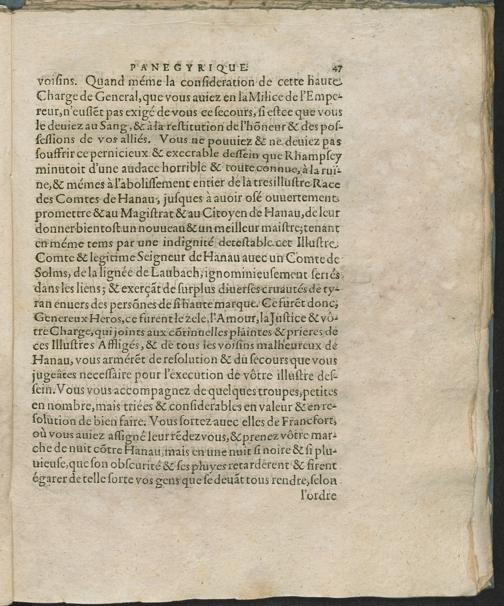 PANEGYRIQUE. 47
voisins. Quand méme la consideration de cette haute
Charge de General, que vous auiez en la Milice de l'Empe-
reur, n'eussẽt pas exigé de vous ce secours, si estce que vous
le deuiez au Sang, & à la restitution de l'hõneur & des pos-
sessions de vos alliés. Vous ne pouuiez & ne deuiez pas
souffrir ce pernicieux & execrable dessein que Rhampsey
minutoit d'une audace horrible & toute connue, à la rui-
ne, & mémes à l'abolissement entier de la tresillustre Race
des Comtes de Hanau, jusques à auoir osé ouuertement
promettre & au Magistrat & au Citoyen de Hanau, de leur
donner bientost un nouueau & un meilleur maistre; tenant
en méme tems par une indignité detestable cet Illustre
Comte & legitime Seigneur de Hanau auec un Comte de
Solms, de la lignée de Laubach, ignominieusement serrés
dans les liens; & exerçãt de surplus diuerses cruautés de ty-
ran enuers des persõnes de si haute marque. Ce furẽt donc,
Genereux Heros, ce furent le zele, l'Amour, la Justice & vô-
tre Charge, qui joints aux cõtinuelles plaintes & prieres de
ces Illustres Affligés, & de tous les voisins malheureux de
Hanau, vous armérẽt de resolution & du secours que vous
jugeâtes necessaire pour l'execution de vôtre illustre des-
sein. Vous vous accompagnez de quelques troupes, petites
en nombre, mais triées & considerables en valeur & en re-
solution de bien faire. Vous sortez auec elles de Francfort,
où vous auiez assigné leur rẽdezvous, & prenez vôtre mar-
che de nuit cõtre Hanau, mais en une nuit si noire & si plu-
uieuse, que son obscurité & ses pluyes retardérent & firent
égarer de telle sorte vos gens que se deuãt tous rendre, selon
l'ordre